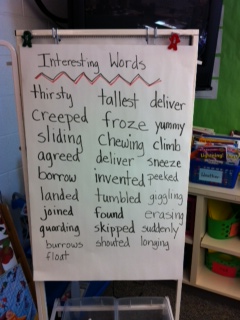 Interesting Words
thirsty tallest deliver
Creeped froze yummy
sliding Chewing climb
agreed deliver sneeze
borrow invented peeked
landed tumbled giggling
joined found erasing
guarding skipped suddenly
burrows shouted longing
float